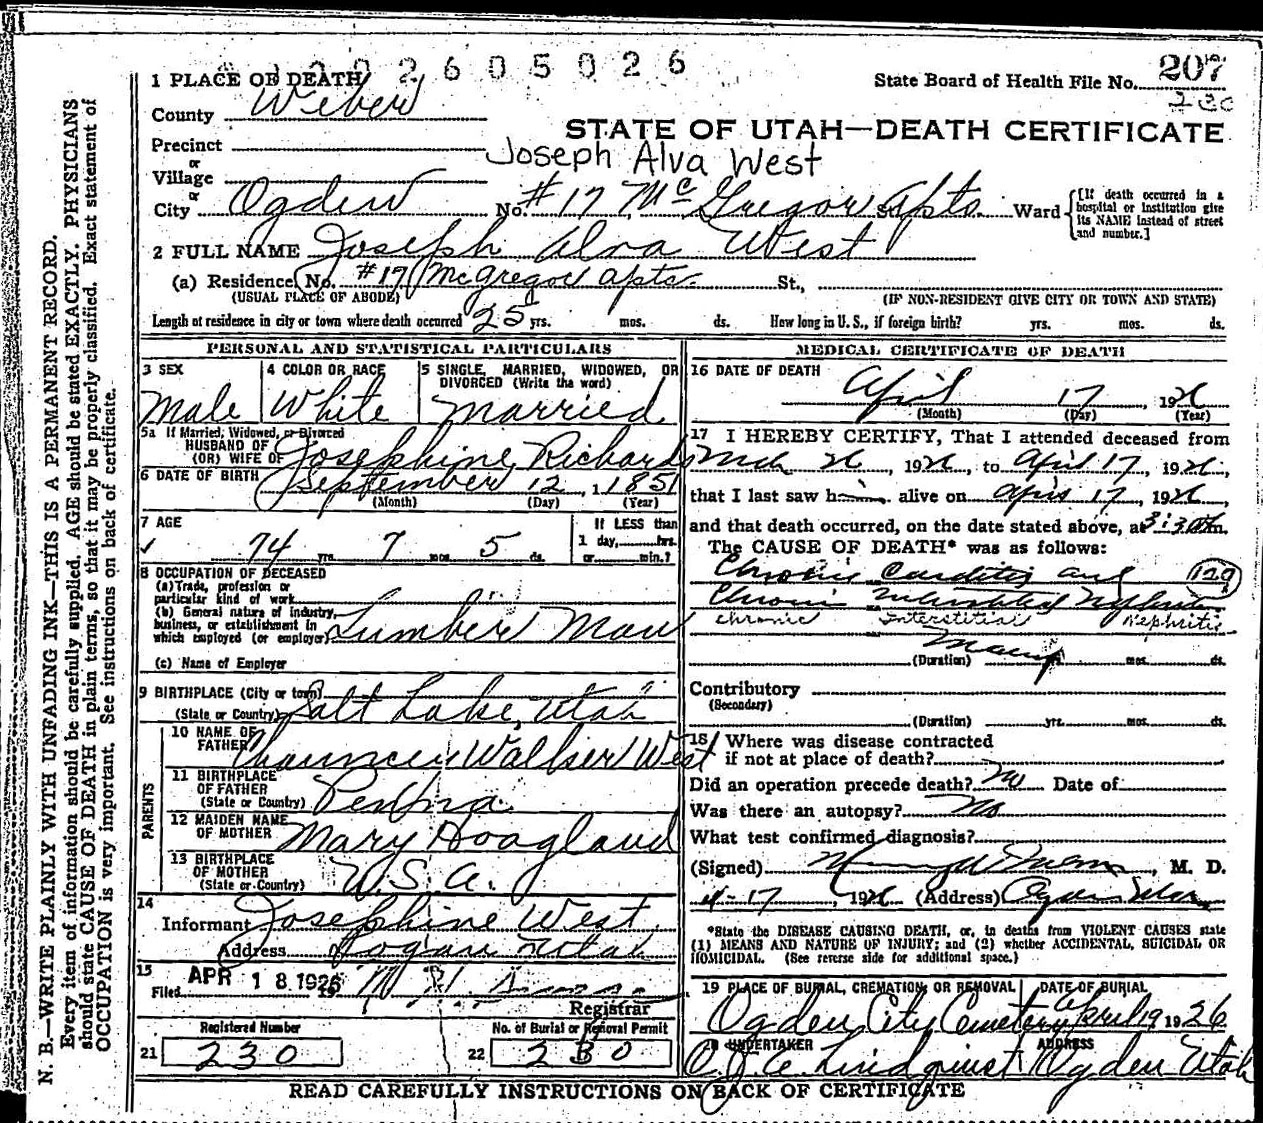 2605026
1 PLACE OF DEATH
State Board of Health File No. 207
230
County Weber
STATE OF UTAH—DEATH CERTIFICATE
Precinct
or
Joseph Alva West
Village
or
City Ogden No. #17 McGregor Apts. St. Ward
[If death occurred in a hospital or institution give its NAME instead of street and number.]
2 FULL NAME Joseph Alva West
(a) Residence No. #17 McGregor Apts. St.,
(USUAL PLACE OF ABODE) (IF NON-RESIDENT GIVE CITY OR TOWN AND STATE)
Length of residence in city or town where death occurred 25 yrs. mos. ds. How long in U. S., if foreign birth? yrs. mos. ds.
PERSONAL AND STATISTICAL PARTICULARS
3 SEX
Male
4 COLOR OR RACE
White
5 SINGLE, MARRIED, WIDOWED, OR
DIVORCED (Write the word)
Married
5a If Married, Widowed, or Divorced
HUSBAND OF
(OR) WIFE OF Josephine Richards
6 DATE OF BIRTH September 12, 1851
(Month) (Day) (Year)
7 AGE
74 yrs. 7 mos. 5 ds.
If LESS than
1 day, hrs.
or min.?
8 OCCUPATION OF DECEASED
(a) Trade, profession or
particular kind of work
(b) General nature of industry,
business, or establishment in
which employed (or employer) Lumber Man
(c) Name of Employer
9 BIRTHPLACE (City or town)
(State or Country) Salt Lake, Utah
PARENTS
10 NAME OF
FATHER Chauncey Walker West
11 BIRTHPLACE
OF FATHER
(State or Country) Penna.
12 MAIDEN NAME
OF MOTHER Mary Hoagland
13 BIRTHPLACE
OF MOTHER
(State or Country) U.S.A.
14
Informant Josephine West
Address Logan Utah
15
Filed APR 18 1926
Registrar
Registered Number
21 230
No. of Burial or Removal Permit
22 230
MEDICAL CERTIFICATE OF DEATH
16 DATE OF DEATH
April 17, 1926
(Month) (Day) (Year)
17 I HEREBY CERTIFY, That I attended deceased from
Mch 26, 1926, to April 17, 1926,
that I last saw him alive on April 17, 1926,
and that death occurred, on the date stated above, at 3:30 m.
The CAUSE OF DEATH* was as follows:
Chronic Carditis and 129
Chronic Interstitial Nephritis
chronic Interstitial Nephritis
(Duration) Many mos. ds.
Contributory
(Secondary)
(Duration) yrs. mos. ds.
18 Where was disease contracted
if not at place of death?
Did an operation precede death? No Date of
Was there an autopsy? No
What test confirmed diagnosis?
(Signed) , M. D.
4-17, 1926 (Address) Ogden Utah
*State the DISEASE CAUSING DEATH, or, in deaths from VIOLENT CAUSES state
(1) MEANS AND NATURE OF INJURY; and (2) whether ACCIDENTAL, SUICIDAL OR
HOMICIDAL. (See reverse side for additional space.)
19 PLACE OF BURIAL, CREMATION, OR REMOVAL
Ogden City Cemetery
DATE OF BURIAL
April 19 1926
20 UNDERTAKER
Lindquist
ADDRESS
Ogden Utah
READ CAREFULLY INSTRUCTIONS ON BACK OF CERTIFICATE
N. B.—WRITE PLAINLY WITH UNFADING INK—THIS IS A PERMANENT RECORD.
Every item of information should be carefully supplied. AGE should be stated EXACTLY. PHYSICIANS
should state CAUSE OF DEATH in plain terms, so that it may be properly classified. Exact statement of
OCCUPATION is very important. See instructions on back of certificate.